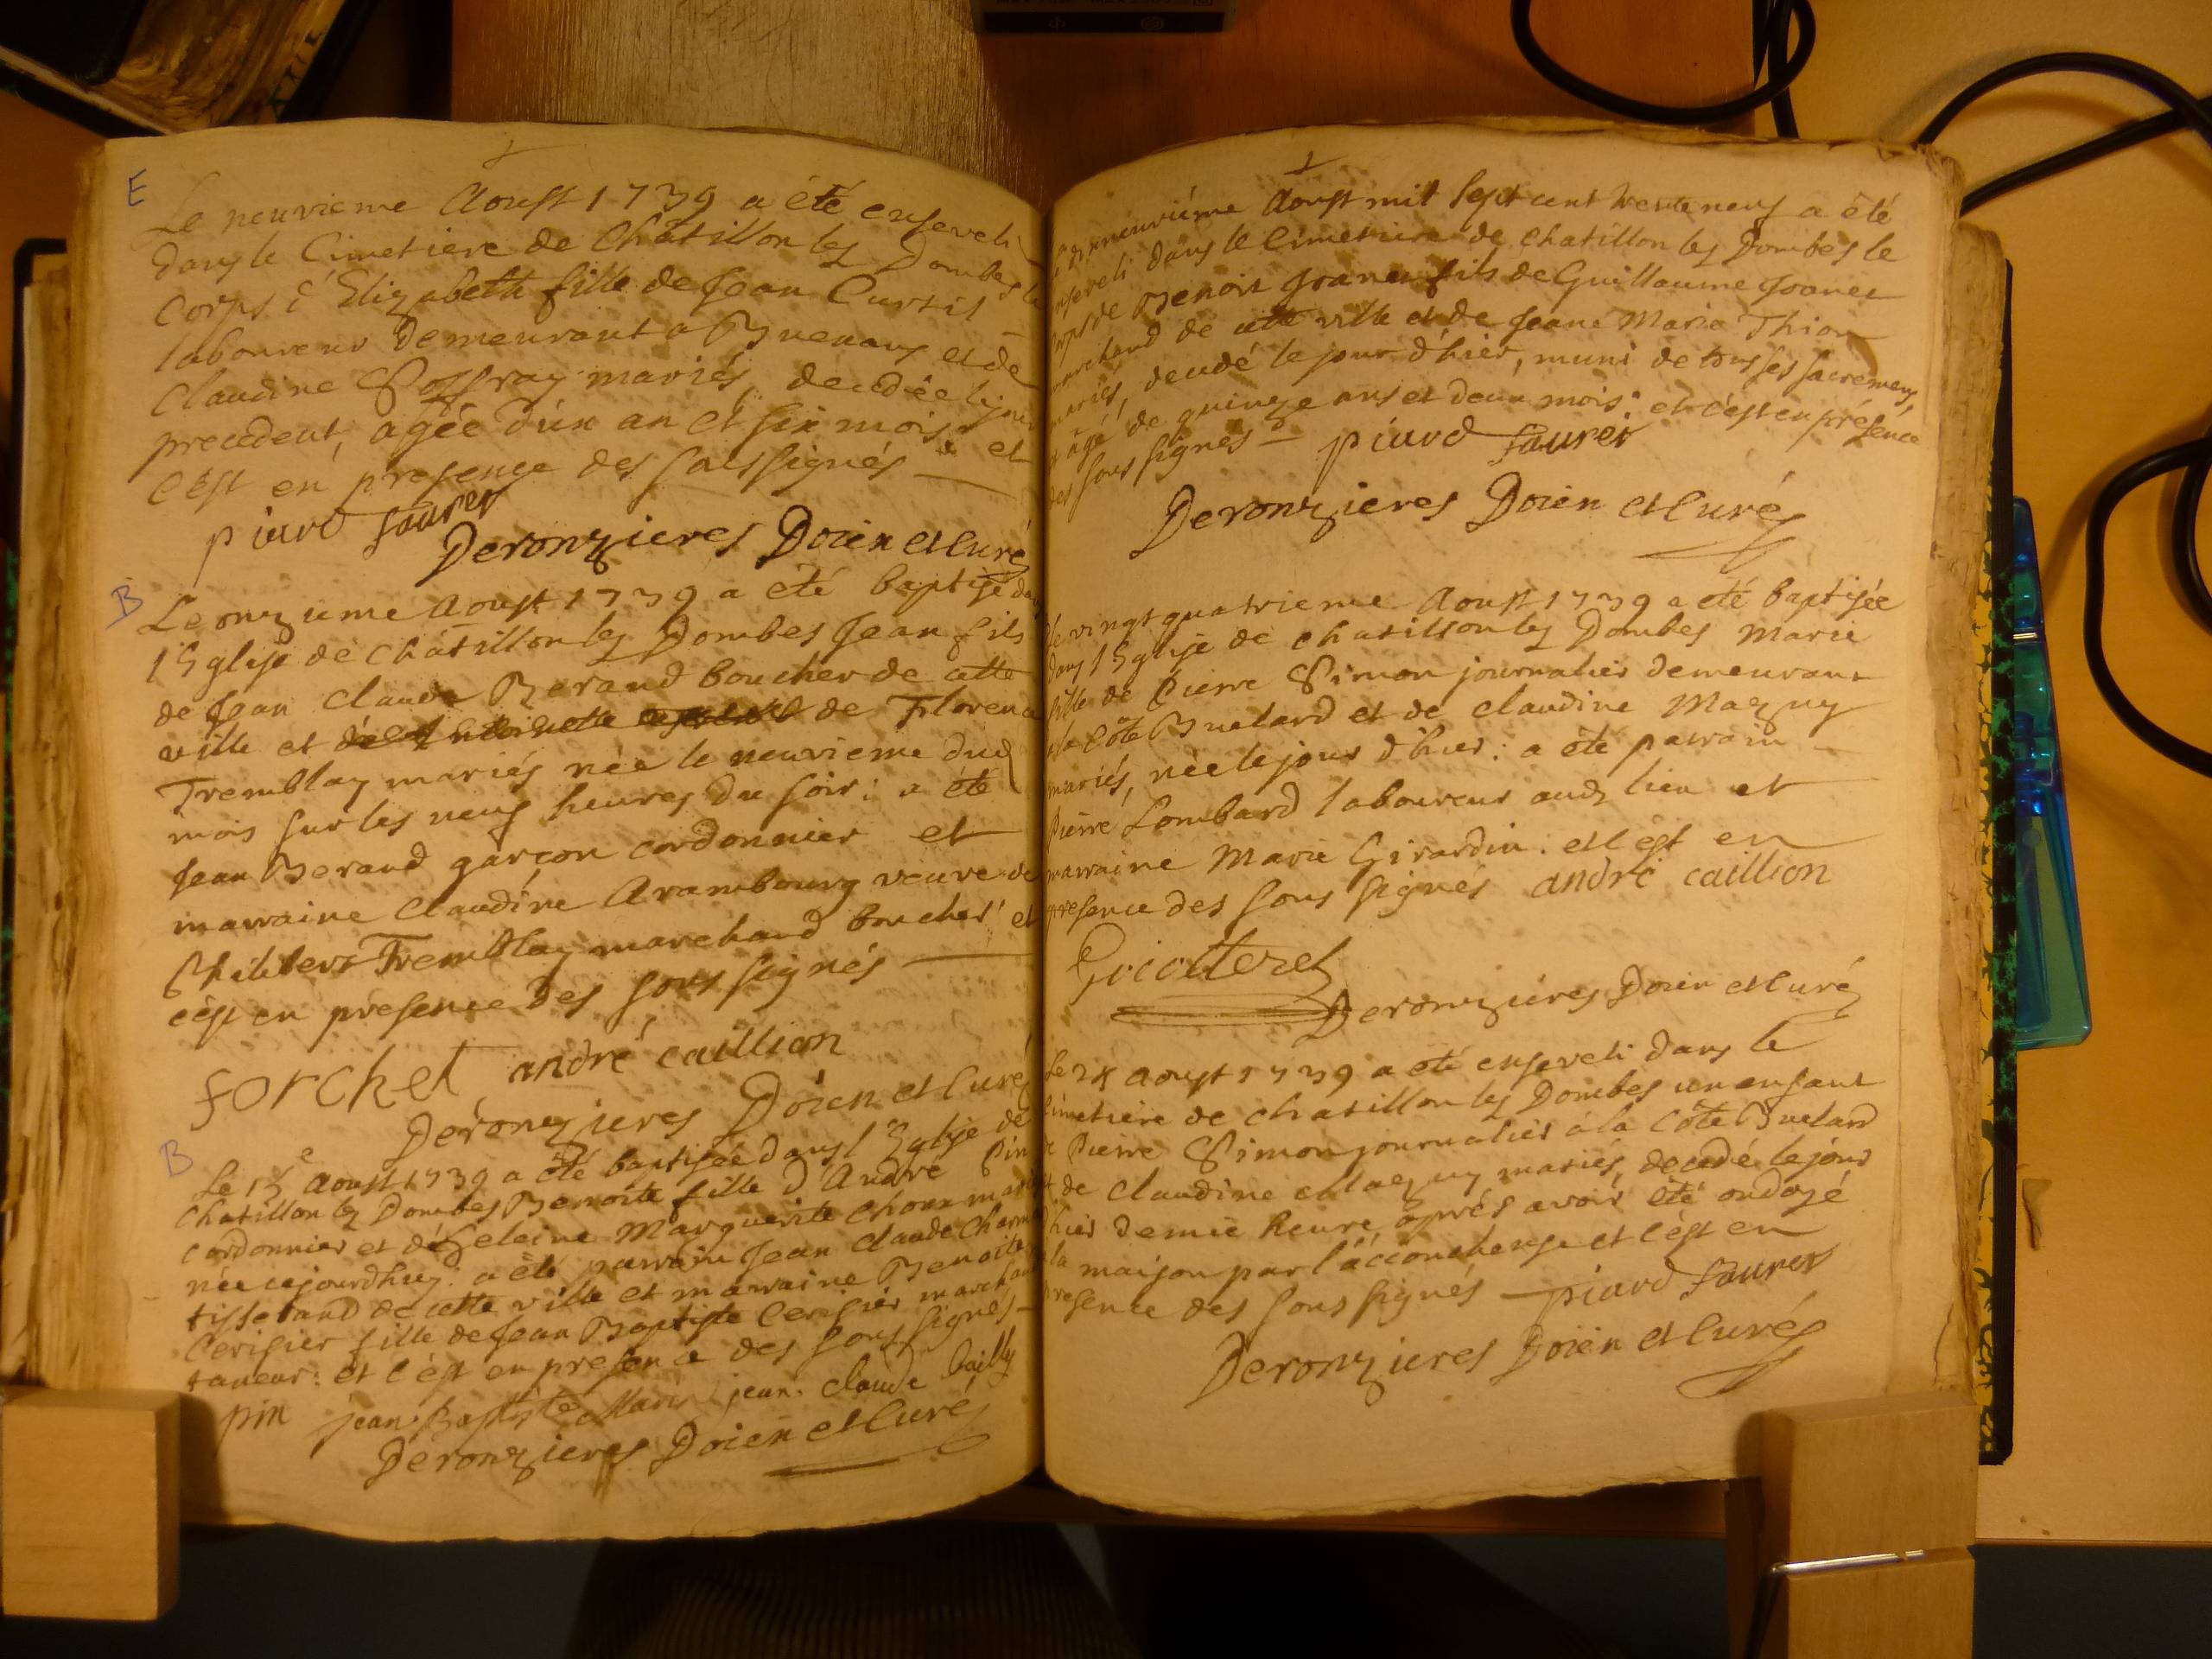 E
Le neuvieme Aoust 1739 a été enseveli
dans le Cimetiere de Châtillon les Dombes le
Corps d'Elizabeth fille de Jean Curtil
laboureur demeurant a Buenans et de
Claudine mariés, decedée le jour
precedent, agée d'un an et six mois: et
c'est en presence des soussignés
piard faurer
Deronzieres Doien et Curé
B
Le onzieme Aoust 1739 a été baptisé dans
l'Eglise de Châtillon les Dombes Jean fils
de Jean Claude Beraud boucher de cette
ville et de Florence
Tremblay mariés née le neuvieme dud
mois sur les neuf heures du soir: a été
Jean Beraud garçon cordonnier et
marraine Claudine Arambourg veuve de
Philibert Tremblay marchand boucher et
c'est en présence des sous signés
forchet andré caillion
Deronzieres Doien et Curé
B
Le 13e Aoust 1739 a été baptisée dans l'Eglise de
Chatillon les Dombes Benoite fille d'André Pin
cordonnier et d'Heleine Marguerite Choux mariés
née cejourdhuy: a été parrain Jean Claude
tisserand de cette ville et marraine Benoite
Cerisier fille de Jean Baptiste Cerisier marchand
taneur: et c'est en presence des sous signés
pin jean Baptiste jean claude bailly
Deronzieres Doien et Curé
Le dixneuviéme Aoust mil sept cent trente neuf a été
enseveli dans le Cimetiere de Chatillon les Dombes le
corps de Benoit Granet fils de Guillaume Granet
marchand de cette ville et de Jeane Marie Thion
mariés, decedé le jour d'hier, muni de tous ses sacremens,
et agé de quinze ans et deux mois: et c'est en présence
des sous signés piard faurer
Deronzieres Doien et Curé
Le vingtquatrieme Aoust 1739 a été baptisée
dans l'Eglise de Chatillon les Dombes Marie
fille de Pierre Simon journalier demeurant
a la Côte Buelard et de Claudine Mazuy
mariés, née le jour d'hier: a été parrain
Pierre Lombard laboureur aud lieu et
marraine Marie Girardin. et c'est en
presence des sous signés andré caillion
Guicotteret
Deronzieres Doien et Curé
Le 24 Aoust 1739 a été enseveli dans le
Cimetiere de Chatillon les Dombes un enfant
de Pierre Simon journalier à la Côte Buelard
et de Claudine Mazuy mariés, decedé le jour
d'hier demie heure après avoir été ondoyé
a la maison par l'accoucheuse et c'est en
presence des sous signés piard faurer
Deronzieres Doien et Curé